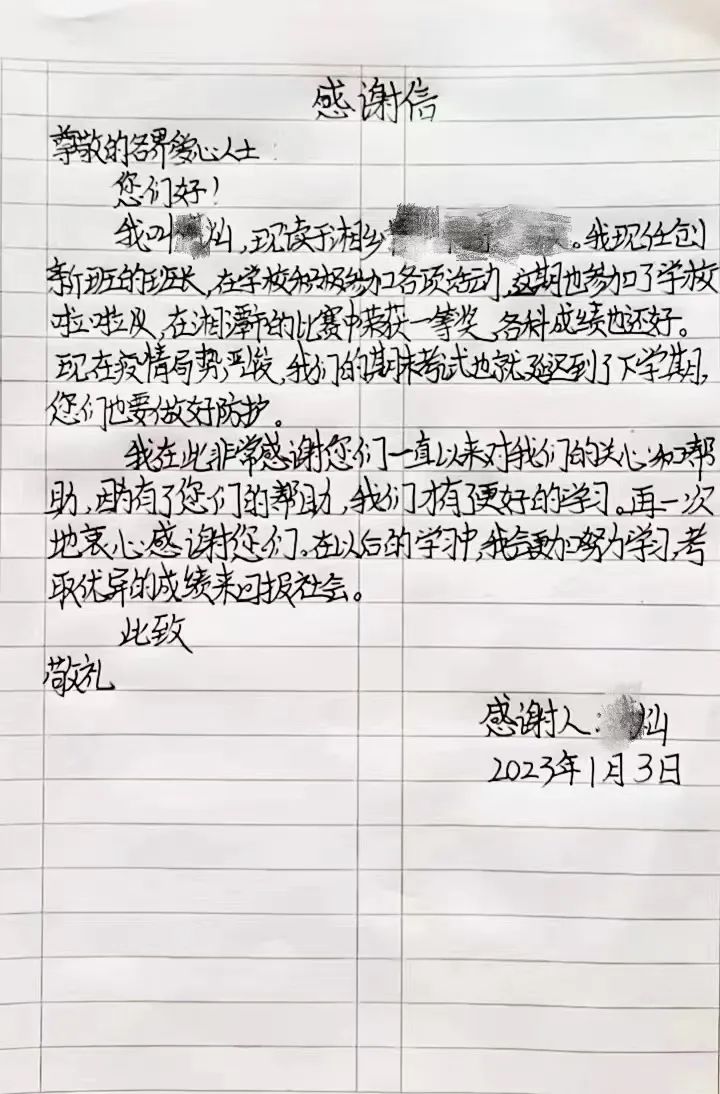 感谢信
尊敬的各界爱心人士:
您们好!
我叫 灿,现读于湘乡 。我现任创
新班的班长,在学校积极参加各项活动,这期也参加了学校
啦啦队,在湘潭市的比赛中荣获一等奖,各科成绩也还好。
现在疫情局势严峻,我们的期末考式也就延迟到了下学期,
您们也要做好防护。
我在此非常感谢您们一直以来对我们的关心和帮
助,因为有了您们的帮助,我们才有了更好的学习。再一次
地衷心感谢您们。在以后的学习中,我会更加努力学习,考
取优异的成绩来回报社会。
此致
敬礼
感谢人: 灿
2023年1月3日